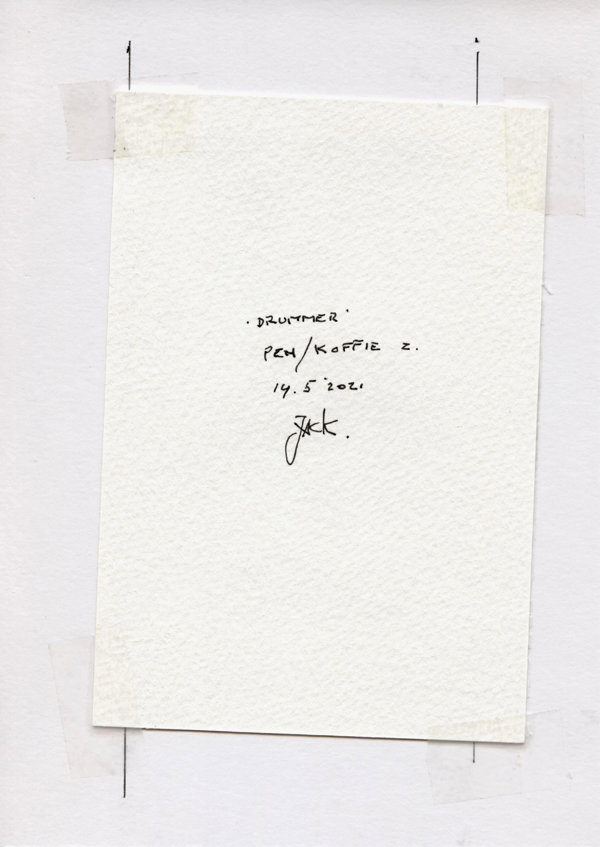 'DRUMMER'
PEN/KOFFIE 2.
14.5 '2021
JACK.